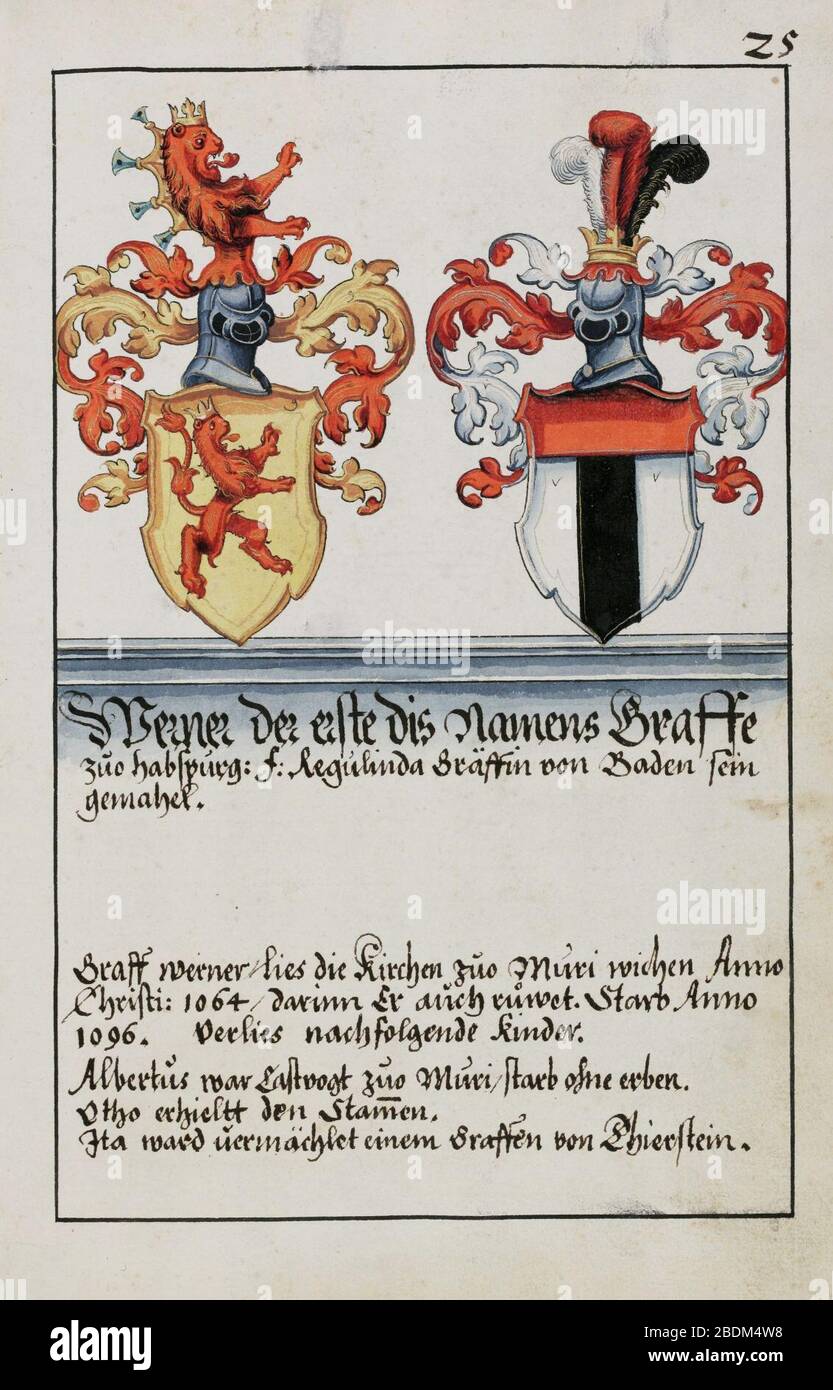 25
Werner der erste dis Namens Graffe
zuo habspurg: f: Regulinda Gräffin von Baden sein
gemahel.
Graff werner/lies die Kirchen zuo Muri wichen Anno
Christi: 1064/ darinn Er auch růwet. Starb Anno
1096. Verlies nachfolgende Kinder.
Albertus war Castvogt zuo Muri/starb ohne erben.
Otho erhieltt den Stam̃en.
Ita ward vermächlet einem Graffen von Thierstein.
alamy
Image ID: 2BDM4W8
www.alamy.com